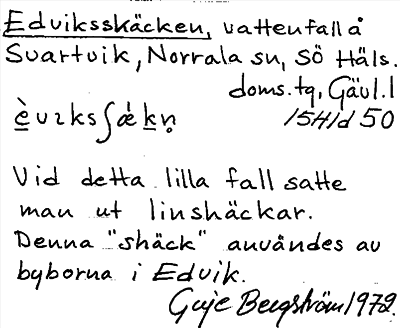 Edviksskäcken, vattenfall å
Svartvik, Norrala sn, Sö Häls.
doms. tg, Gävl. l
15H1d 50
è̲vɪksʃǽk̲n̥
Vid detta lilla fall satte
man ut linshäckar.
Denna "shäck" användes av
byborna i Edvik.
Bergström 1972.